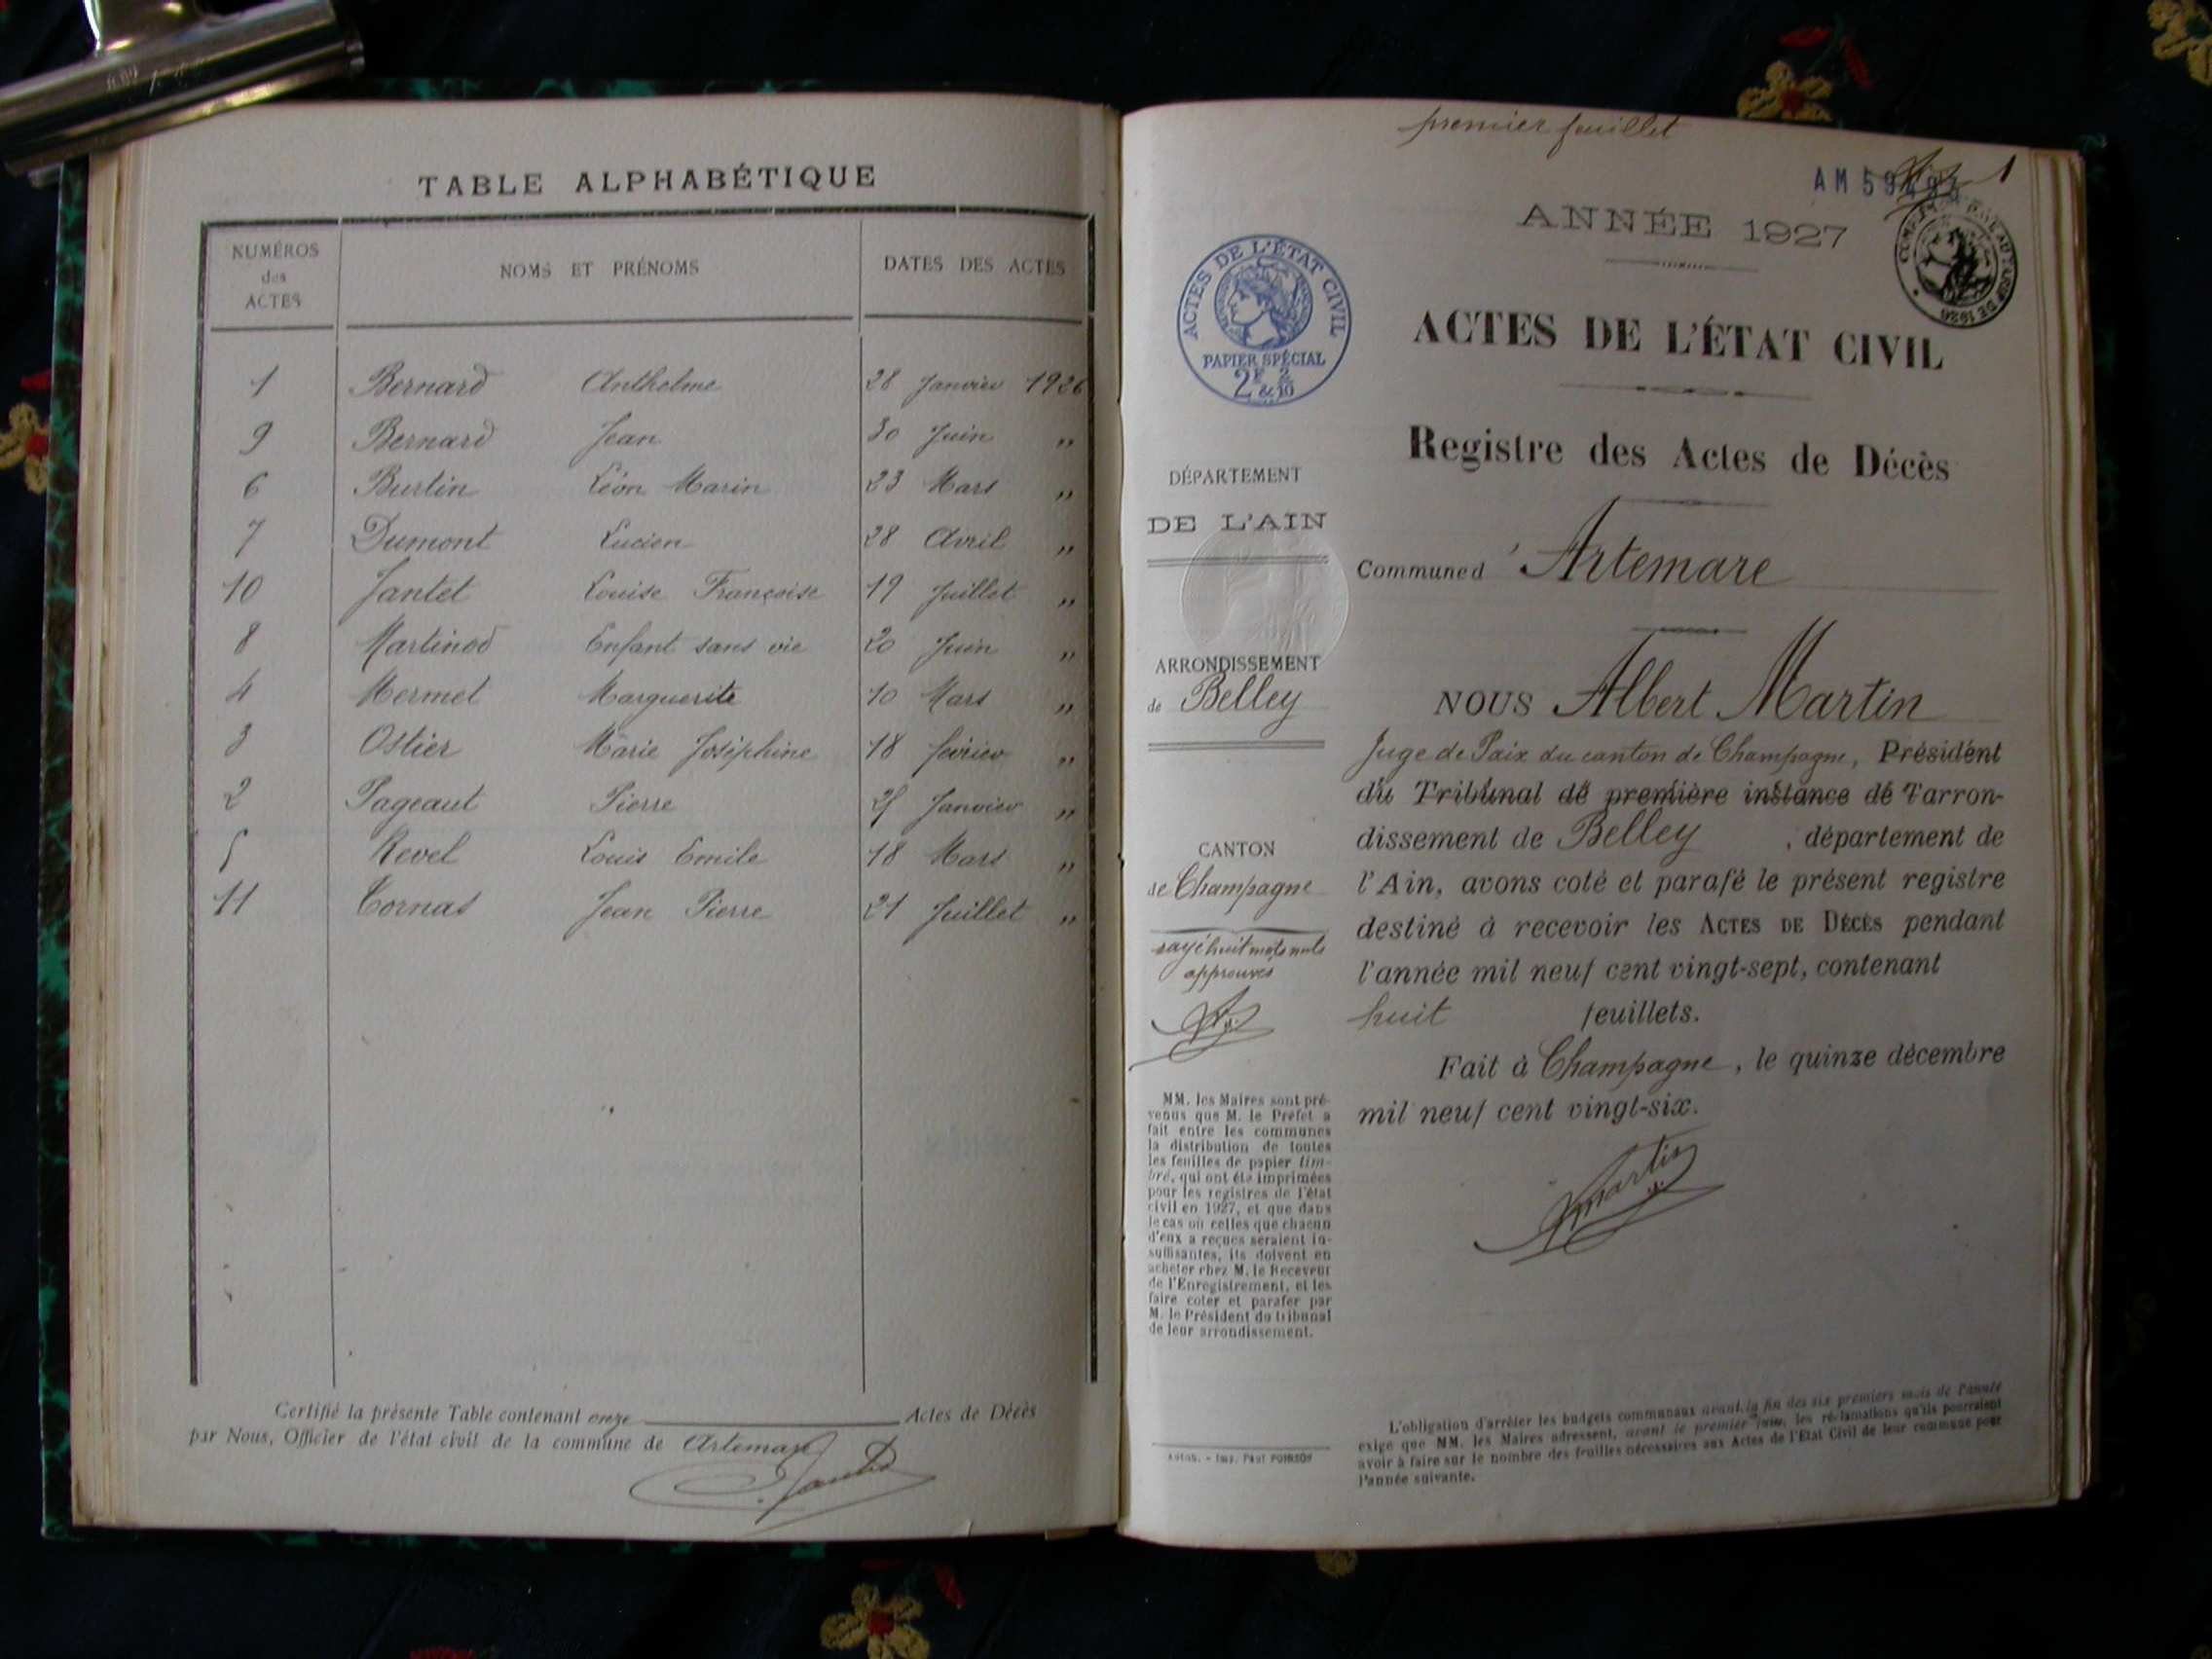 TABLE ALPHABÉTIQUE
NUMÉROS des ACTES NOMS ET PRÉNOMS DATES DES ACTES
1 Bernard Anthelme 28 Janvier 1926
9 Bernard Jean 30 Juin "
6 Burlin Léon Marin 23 Mars "
7 Dumont Lucien 28 Avril "
10 Jantet Louise Françoise 19 Juillet "
8 Martinod Enfant sans vie 20 Juin "
4 Mermet Marguerite 10 Mars "
3 Ostier Marie Joséphine 18 février "
2 Pageaut Pierre Janvier "
5 Revel Louis Emile 18 Mars "
11 Cornas Jean Pierre 21 Juillet "
Certifié la présente Table contenant onze Actes de Décès
par Nous, Officier de l'état civil de la commune de Artemare
premier feuillet
1
AM 59
ANNÉE 1927
ACTES DE L'ÉTAT CIVIL
PAPIER SPÉCIAL
2F & 2/10
ACTES DE L'ÉTAT CIVIL
Registre des Actes de Décès
DÉPARTEMENT
DE L'AIN
Commune d'Artemare
ARRONDISSEMENT
de Belley
NOUS Albert Martin
Juge de Paix du canton de Champagne, Président
du Tribunal de première instance de l'arron-
dissement de Belley, département de
l'Ain, avons coté et parafé le présent registre
destiné à recevoir les ACTES DE DÉCÈS pendant
l'année mil neuf cent vingt-sept, contenant
huit feuillets.
Fait à Champagne, le quinze décembre
mil neuf cent vingt-six.
Martin
CANTON
de Champagne
rayé huit mots nuls
approuvés
MM. les Maires sont pré-
venus que M. le Préfet a
fait entre les communes
la distribution de toutes
les feuilles de papier tim-
bré, qui ont été imprimées
pour les registres de l'état
civil en 1927, et que dans
le cas où celles que chacun
d'eux a reçues seraient in-
suffisantes, ils doivent en
acheter chez M. le Receveur
de l'Enregistrement, et les
faire coter et parafer par
M. le Président du tribunal
de leur arrondissement.
Imp. Paul POINSOT
L'obligation d'arrêter les budgets communaux avant la fin des six premiers mois de l'année
exige que MM. les Maires adressent, avant le premier Juin, les réclamations qu'ils pourraient
avoir à faire sur le nombre des feuilles nécessaires aux Actes de l'Etat Civil de leur commune pour
l'année suivante.